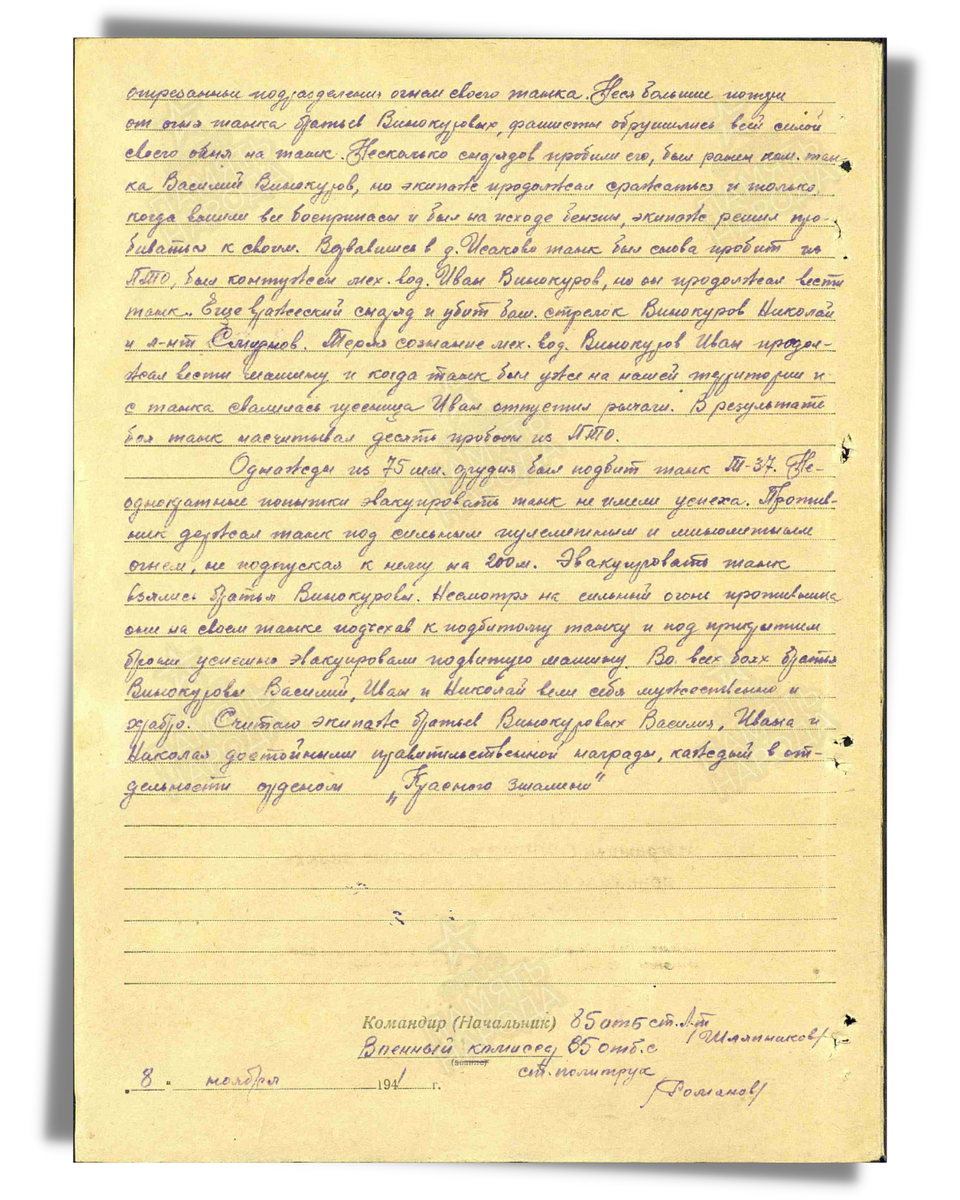 отрезанные подразделения огнем своего танка. Неся большие потери
от огня танка братьев Винокуровых, фашисты обрушились всей силой
своего огня на танк. Несколько снарядов пробили его, был ранен ком. тан-
ка Василий Винокуров, но экипаж продолжал сражаться и только,
когда вышли все боеприпасы и был на исходе бензин, экипаж решил про-
биваться к своим. Ворвавшись в д. Исаково танк был снова пробит из
ПТО, был контужен мех. вод. Иван Винокуров, но он продолжал вести
танк. Еще вражеский снаряд и убит баш. стрелок Винокуров Николай
и л-нт Смирнов. Теряя сознание мех. вод. Винокуров Иван продол-
жал вести машину и когда танк был уже на нашей территории и
с танка свалилась гусеница Иван отпустил рычаги. В результате
боя танк насчитывал десять пробоин из ПТО.
Однажды из 75 мм. орудия был подбит танк Т-37. Не-
однократные попытки эвакуировать танк не имели успеха. Против-
ник держал танк под сильным пулеметным и минометным
огнем, не подпуская к нему на 200 м. Эвакуировать танк
взялись братья Винокуровы. Несмотря на сильный огонь противника
они на своем танке подъехав к подбитому танку и под прикрытием
брони успешно эвакуировали подбитую машину. Во всех боях братья
Винокуровы Василий, Иван и Николай вели себя мужественно и
храбро. Считаю экипаж братьев Винокуровых Василия, Ивана и
Николая достойными правительственной награды, каждый в от-
дельности орденом „Красного знамени“
Командир (Начальник) 85 отб ст. л-т
/Шляпников/
Военный комиссар 85 отб.
ст. политрук
„ 8 “ ноября 1941 г.
/Романов/
ПАМЯТЬ
НАРОДА